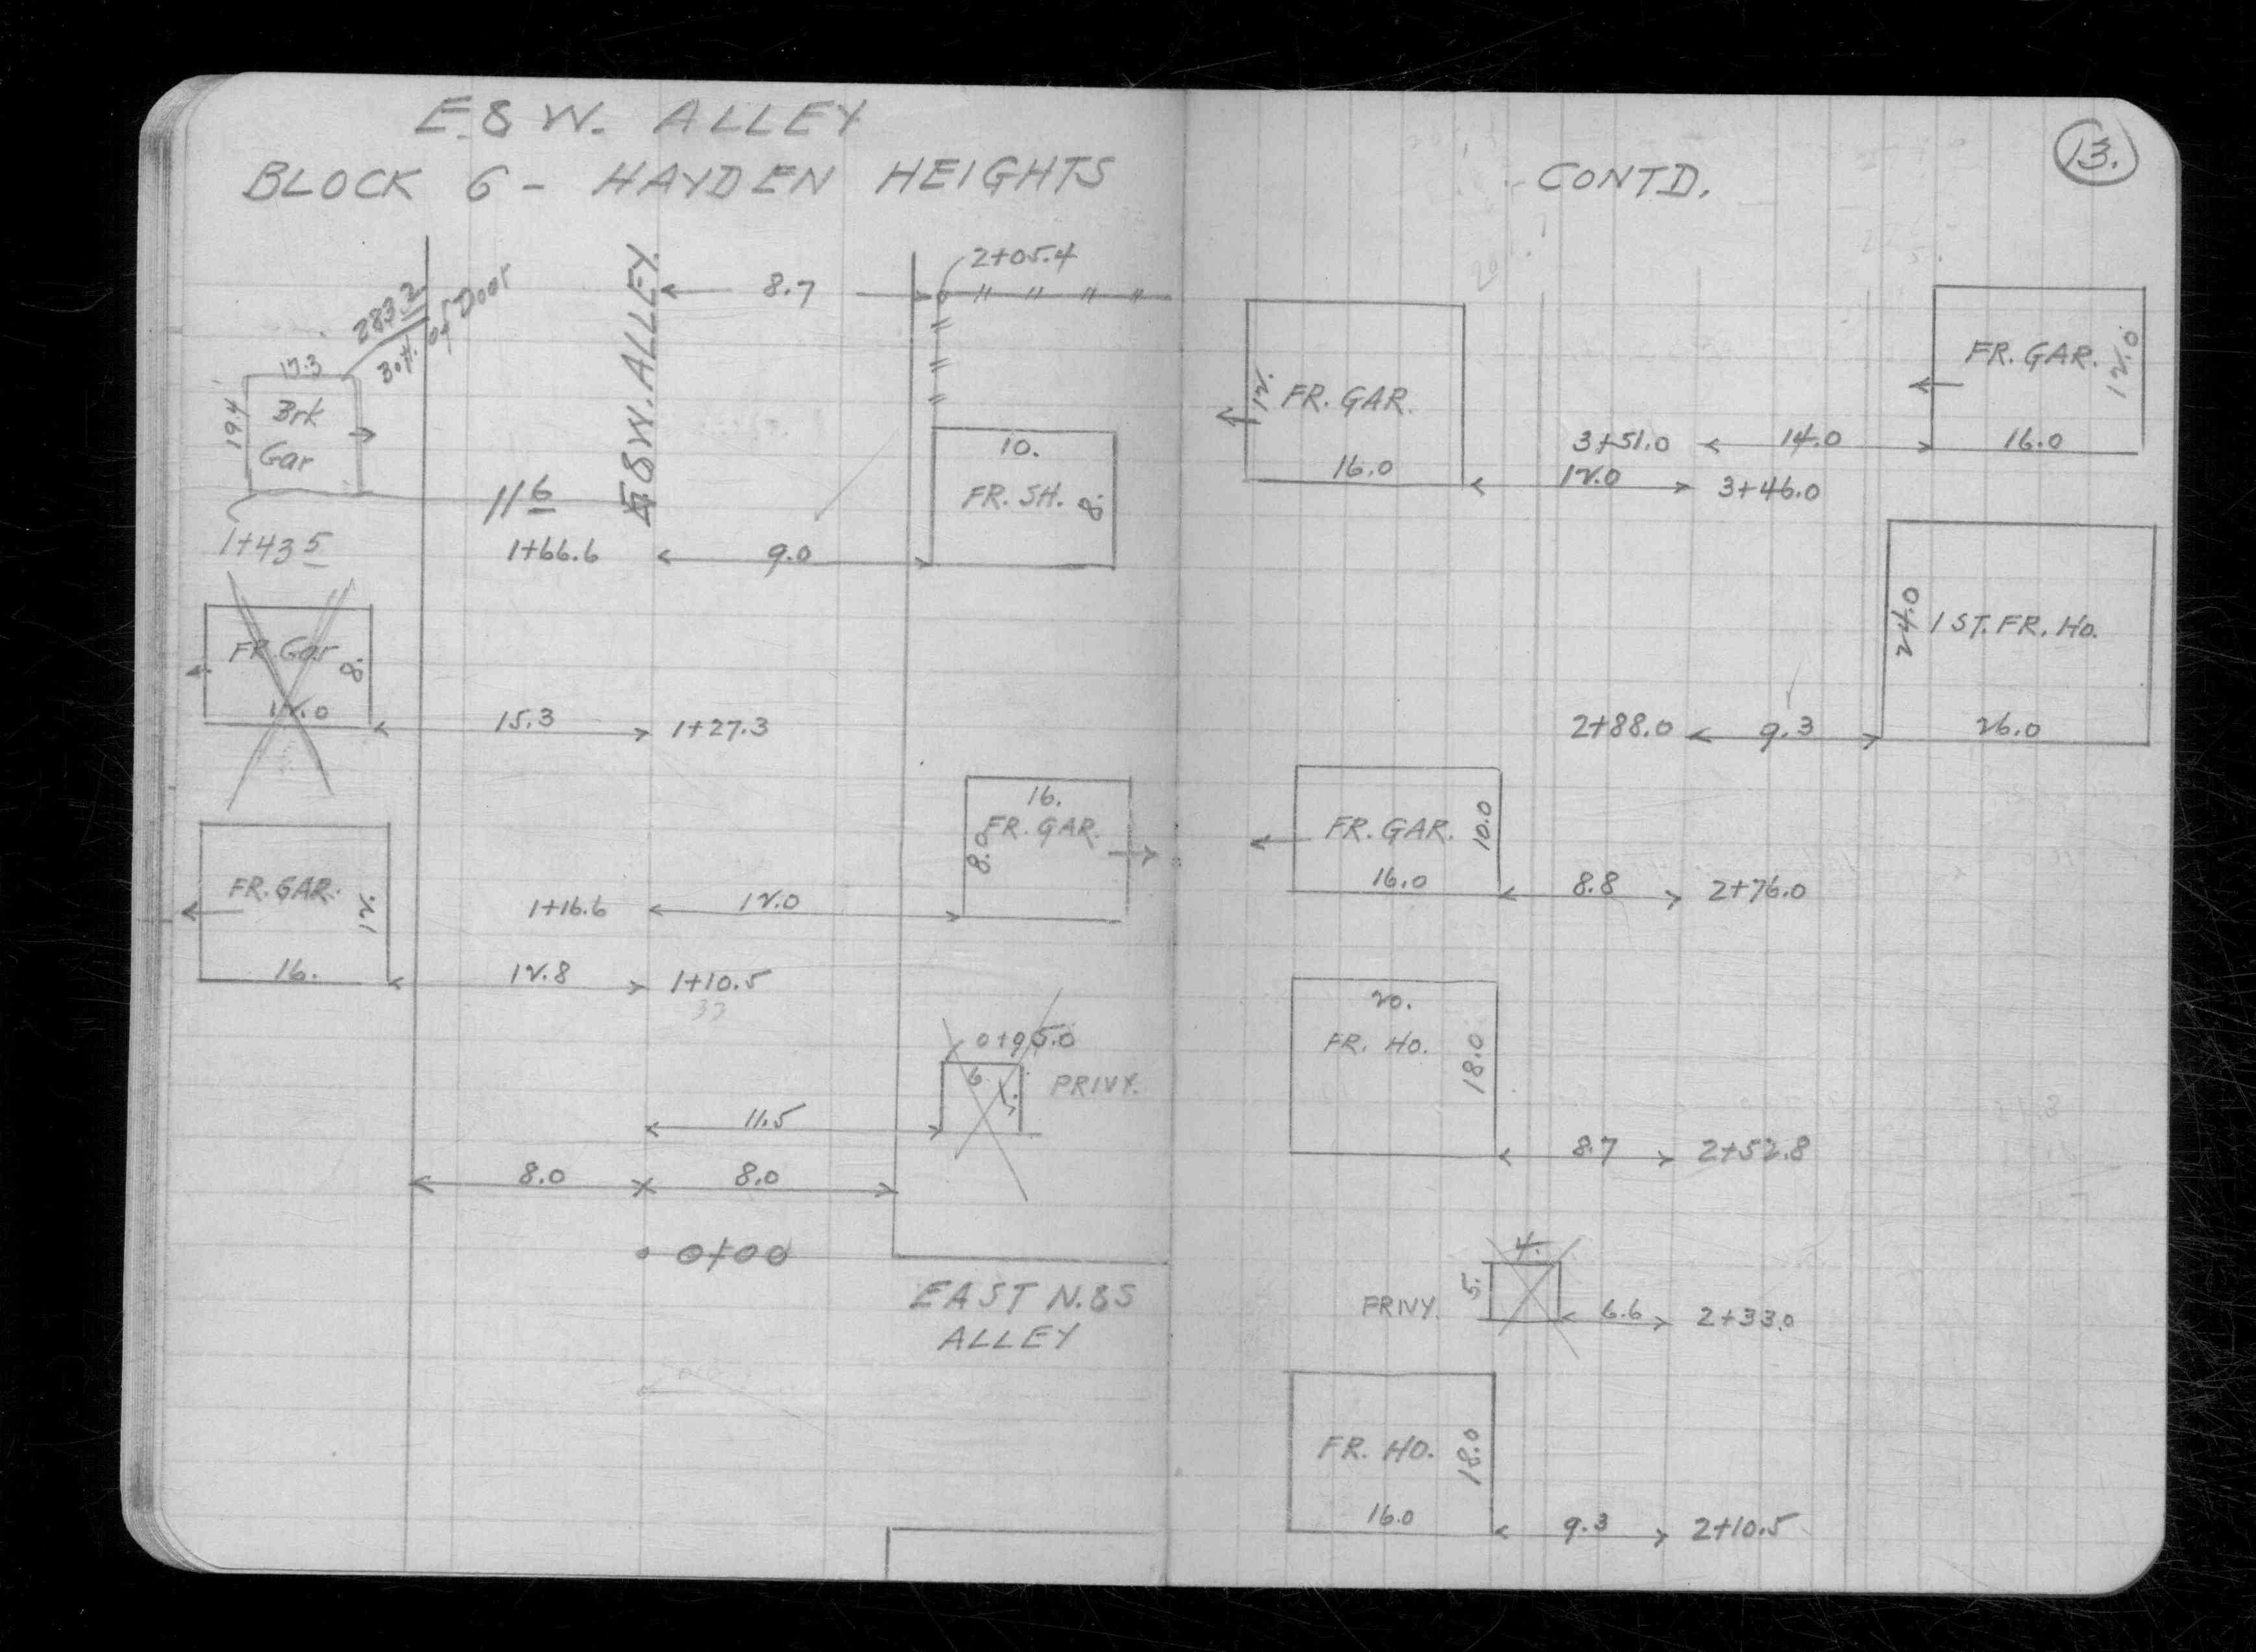 E. & W. ALLEY
BLOCK 6 - HAYDEN HEIGHTS
2+05.4
8.7
E & W. ALLEY.
283.2
Bott. of Door
17.3
19.4
Brk
Gar
11 6
1+43 5
10.
FR. SH.
8.
1+66.6
9.0
FR. Gar
8.
12.0
15.3
1+27.3
16.
FR. GAR.
8.0
1+16.6
12.0
FR. GAR.
12.
16.
12.8
1+10.5
33
0+95.0
6
PRIVY.
11.5
8.0
8.0
0+00
EAST N. & S
ALLEY
13.
CONTD.
FR. GAR.
12.0
16.0
3+51.0
14.0
12.
FR. GAR.
16.0
12.0
3+46.0
24.0
1 ST. FR. HO.
26.0
2+88.0
9.3
FR. GAR.
10.0
16.0
8.8
2+76.0
20.
FR. HO.
18.0
8.7
2+52.8
4.
5.
PRIVY.
6.6
2+33.0
FR. HO.
18.0
16.0
9.3
2+10.5